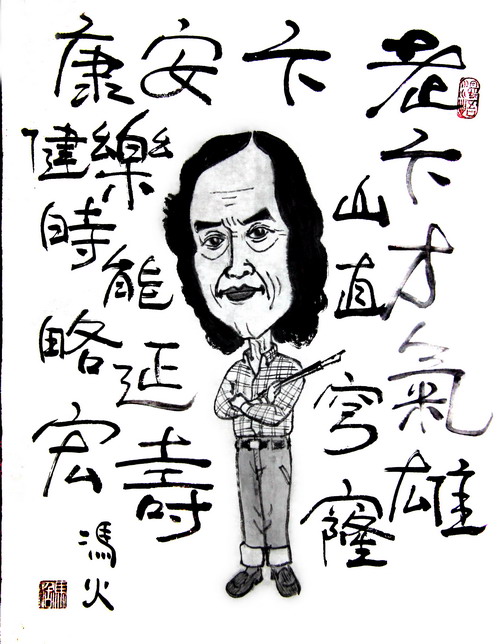 老卞才氣雄
卞山直穹窿
安樂能延壽
康健時略宏
馮火